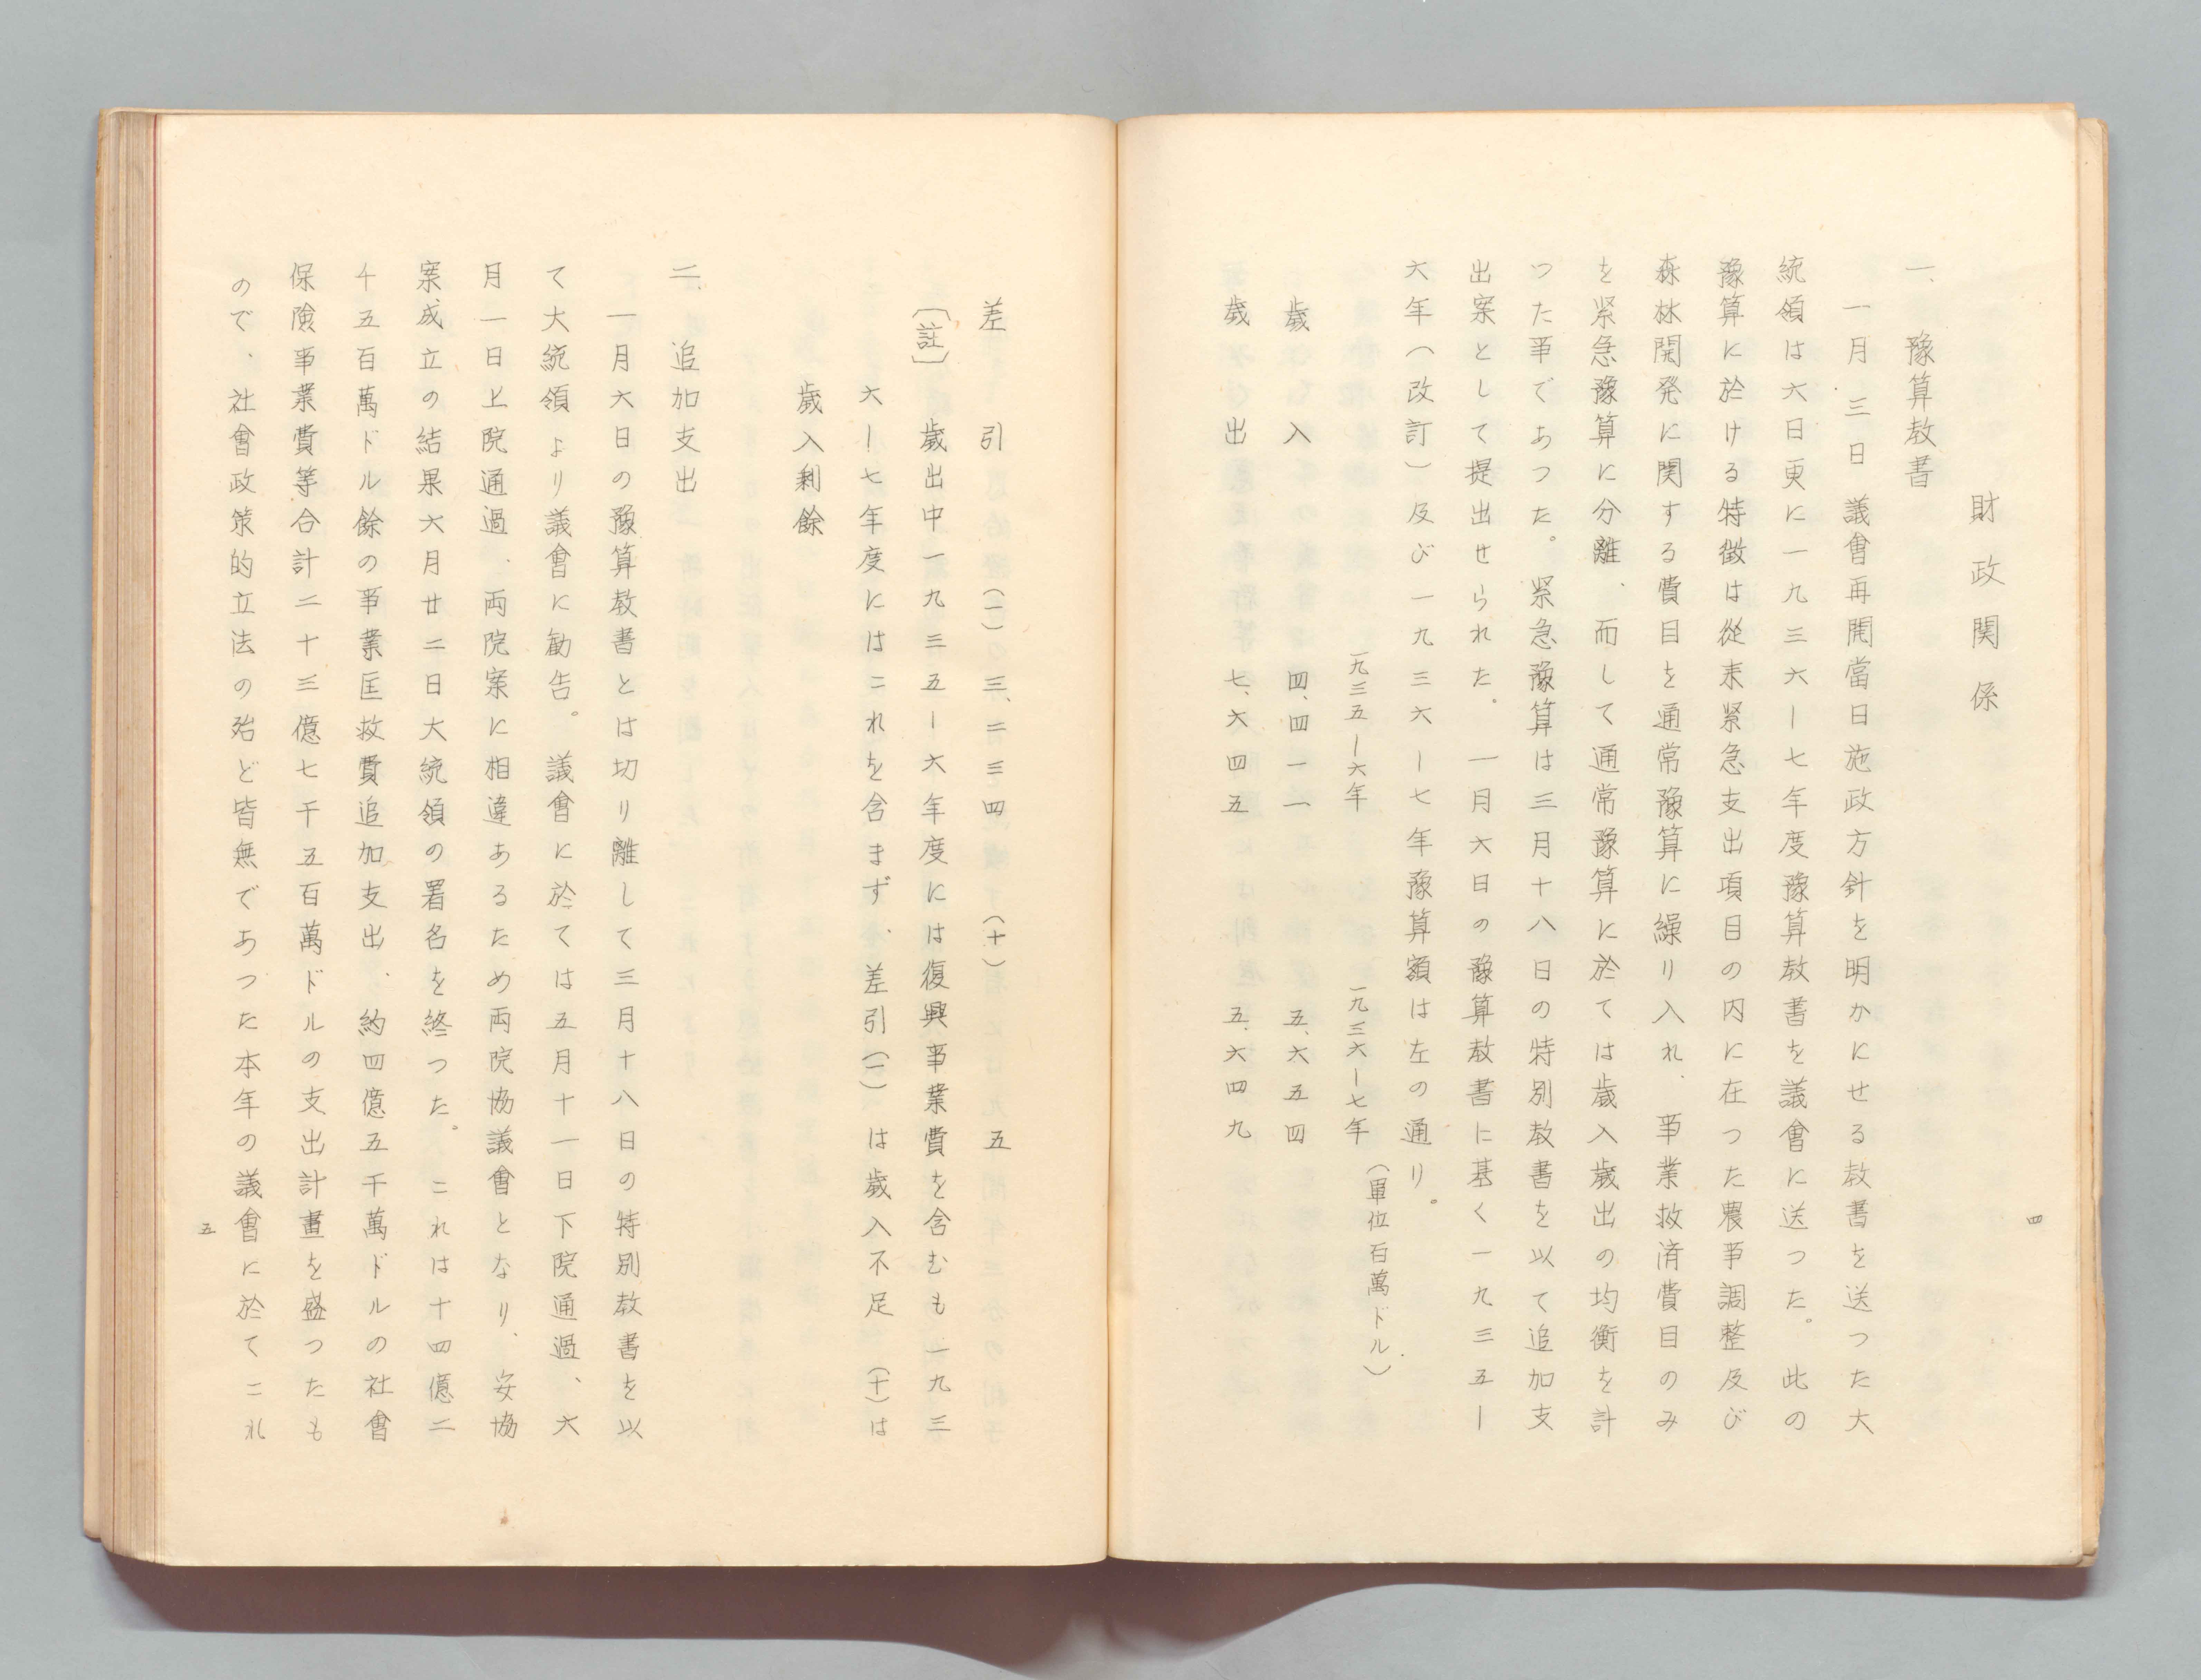 四
財政関係
一、豫算教書
一月三日議會再開當日施政方針を明かにせる教書を送つた大
統領は六日更に一九三六ー七年度豫算教書を議會に送つた。此の
豫算に於ける特徴は從来緊急支出項目の内に在つた農亊調整及び
森林開発に関する費目を通常豫算に繰り入れ、亊業救済費目のみ
を緊急豫算に分離、而して通常豫算に於ては歳入歳出の均衡を計
つた亊であつた。緊急豫算は三月十八日の特別教書を以て追加支
出案として提出せられた。一月六日の豫算教書に基く一九三五ー
六年（改訂）及び一九三六ー七年豫算額は左の通り。
（單位百萬ドル）
一九三五ー六年　一九三六ー七年
歳入　四、四一一　五、六五四
歳出　七、六四五　五、六四九
差引　（一）の三、二三四　（十）五
〔註〕　歳出中一九三五ー六年度には復興亊業費を含むも一九三
六ー七年度にはこれを含まず、差引（一）は歳入不足　（十）は
歳入剰餘
二、追加支出
一月六日の豫算教書とは切り離して三月十八日の特別教書を以
て大統領より議會に勧告。議會に於ては五月十一日下院通過、六
月一日上院通過、両院案に相違あるため両院協議會となり、安協
案成立の結果六月廿二日大統領の署名を終つた。これは十四億二
千五百萬ドル餘の亊業匡救費追加支出、約四億五千萬ドルの社會
保険亊業費等合計二十三億七千五百萬ドルの支出計畫を盛つたも
ので、社會政策的立法の殆ど皆無であつた本年の議會に於てこれ
五